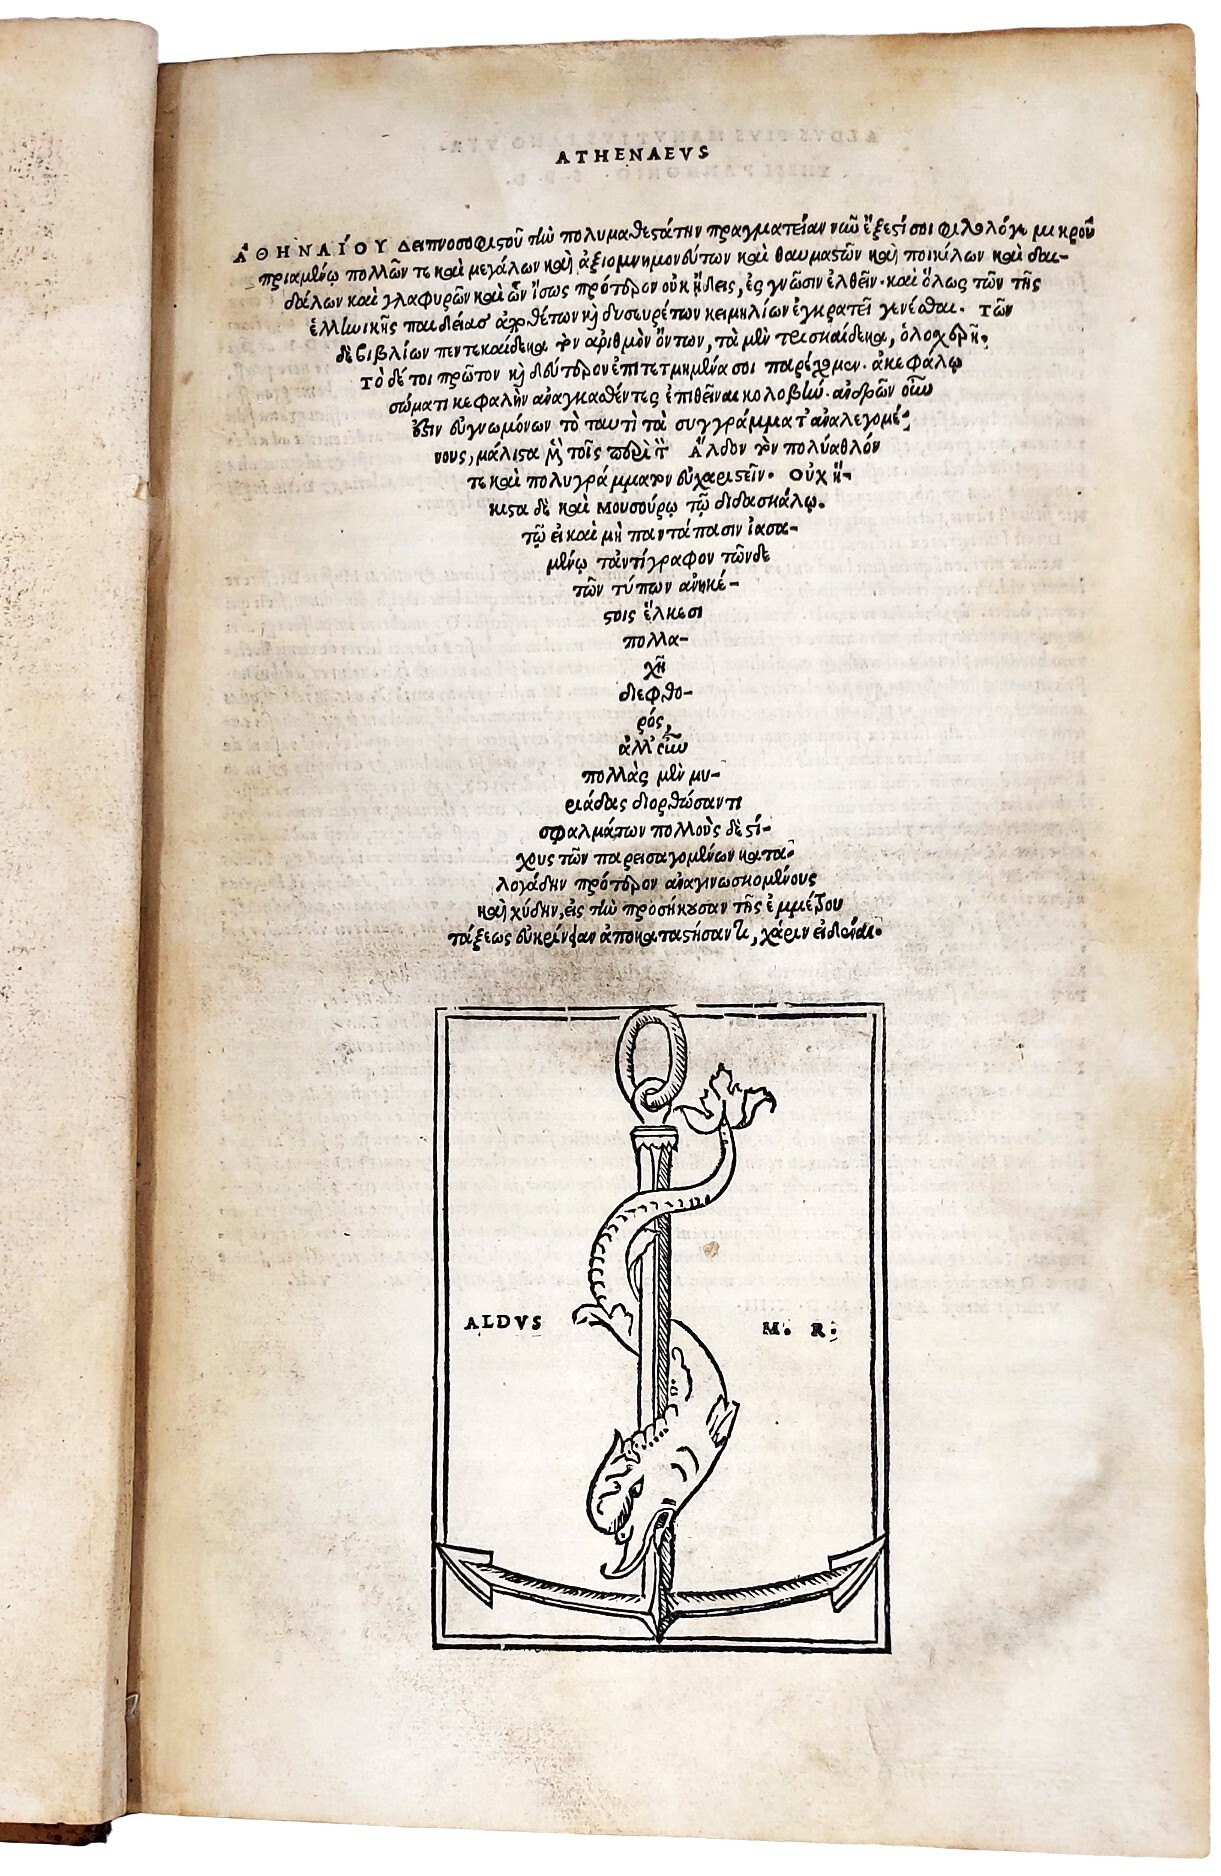 ATHENAEVS
ἈΘΗΝΑΊΟΥ Δειπνοσοφιστοῦ τὴν πολυμαθεστάτην πραγματείαν νῦν ἔξεστί σοι φιλολόγῳ μικροῦ
πριαμένῳ πολλῶν τε καὶ μεγάλων καὶ ἀξιομνημονεύτων καὶ θαυμαστῶν καὶ ποικίλων καὶ δαι-
δάλων καὶ γλαφυρῶν καὶ ὧν ἴσως πρότερον οὐκ ᾔδεις, ἐς γνῶσιν ἐλθεῖν· καὶ ὅλως τῶν τῆς
ἑλληνικῆς παιδείας ἀρρθέτων καὶ δυσευρέτων κειμηλίων ἐγκρατεῖ γενέσθαι. τῶν
δὲ βιβλίων πεντεκαίδεκα τὸν ἀριθμὸν ὄντων, τὰ μὲν τρισκαίδεκα, ὁλοχερῆ.
τὸ δέ τοι πρῶτον καὶ δεύτερον ἐπιτετμημένα σοι παρέχομεν. ἀκεφάλῳ
σώματι κεφαλὴν ἀναγκασθέντες ἐπιθεῖναι κολοβήν. ἀνδρῶν οὖν
ἐστιν εὐγνωμόνων τὸ ταυτὶ τὰ συγγράμματ' ἀναλεγομέ-
νους, μάλιστα μὲν τοῖς περὶ τὸν Ἄλδον τὸν πολύαθλόν
τε καὶ πολυγράμματον εὐχαριστεῖν. Οὐχ ἥ-
κιστα δὲ καὶ Μουσούρῳ τῷ διδασκάλῳ.
τῷ εἰ καὶ μὴ παντάπασιν ἰασα-
μένῳ τἀντίγραφον τῶνδε
τῶν τύπων ἀνηκέ-
στοις ἕλκεσι
πολλα-
χῇ
διεφθο-
ρός,
ἀλλ' οὖν
πολλὰς μὲν μυ-
ριάδας διορθώσαντι
σφαλμάτων πολλοὺς δὲ στί-
χους τῶν παρεισαγομένων κατα-
λογάδην πρότερον ἀναγινωσκομένους
καὶ χύδην, εἰς τὴν προσήκουσαν τῆς ἐμμέτρου
τάξεως εὐκρίνειαν ἀποκαταστήσαντι, χάριν εἰδέναι.
ALDVS M. R.